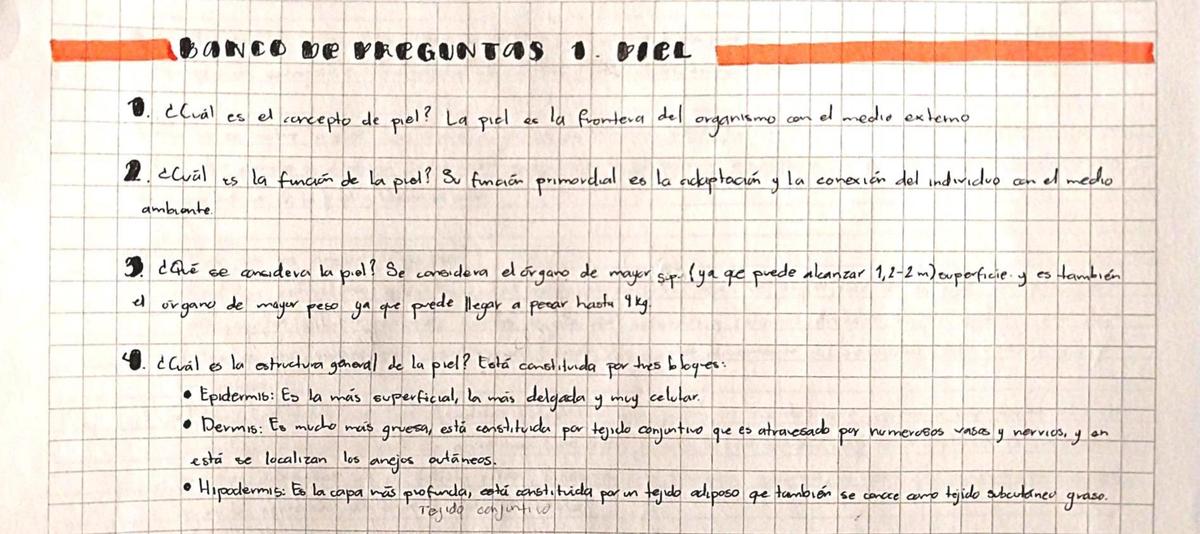 BANCO DE PREGUNTAS 1. PIEL
1. ¿Cuál es el concepto de piel? La piel es la frontera del organismo con el medio externo
2. ¿Cuál es la función de la piel? Su función primordial es la adaptación y la conexión del individuo con el medio
ambiente.
3. ¿Qué se considera la piel? Se considera el órgano de mayor sup. (ya qe puede alcanzar 1,2-2 m) superficie y es también
el órgano de mayor peso ya que puede llegar a pesar hasta 4 kg.
4. ¿Cuál es la estructura general de la piel? Está constituida por tres bloques:
• Epidermis: Es la más superficial, la más delgada y muy celular.
• Dermis: Es mucho más gruesa, está constituida por tejido conjuntivo que es atravesado por numerosos vasos y nervios, y en
está se localizan los anejos cutáneos.
• Hipodermis: Es la capa más profunda, está constituida por un tejido adiposo que también se conoce como tejido subcutáneo graso.
Tejido conjuntivo